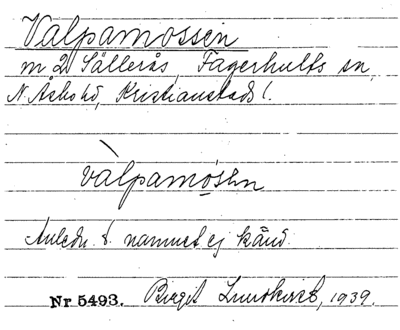 Valpamossen
m 2 Sällerås, Fagerhults sn,
N. Åsbo hd, Kristianstads l.
vàlpamo̲sen
Anledn. t. namnet ej känd.
Nr 5493. Birgit Lundkvist, 1939.